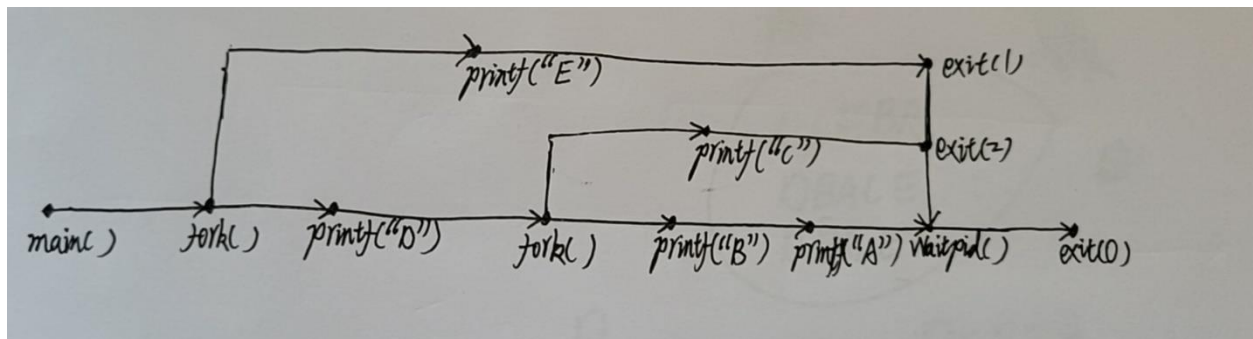 printf("E")
exit(1)
printf("C")
exit(2)
main() fork() printf("D") fork() printf("B") printf("A") waitpid() exit(0)